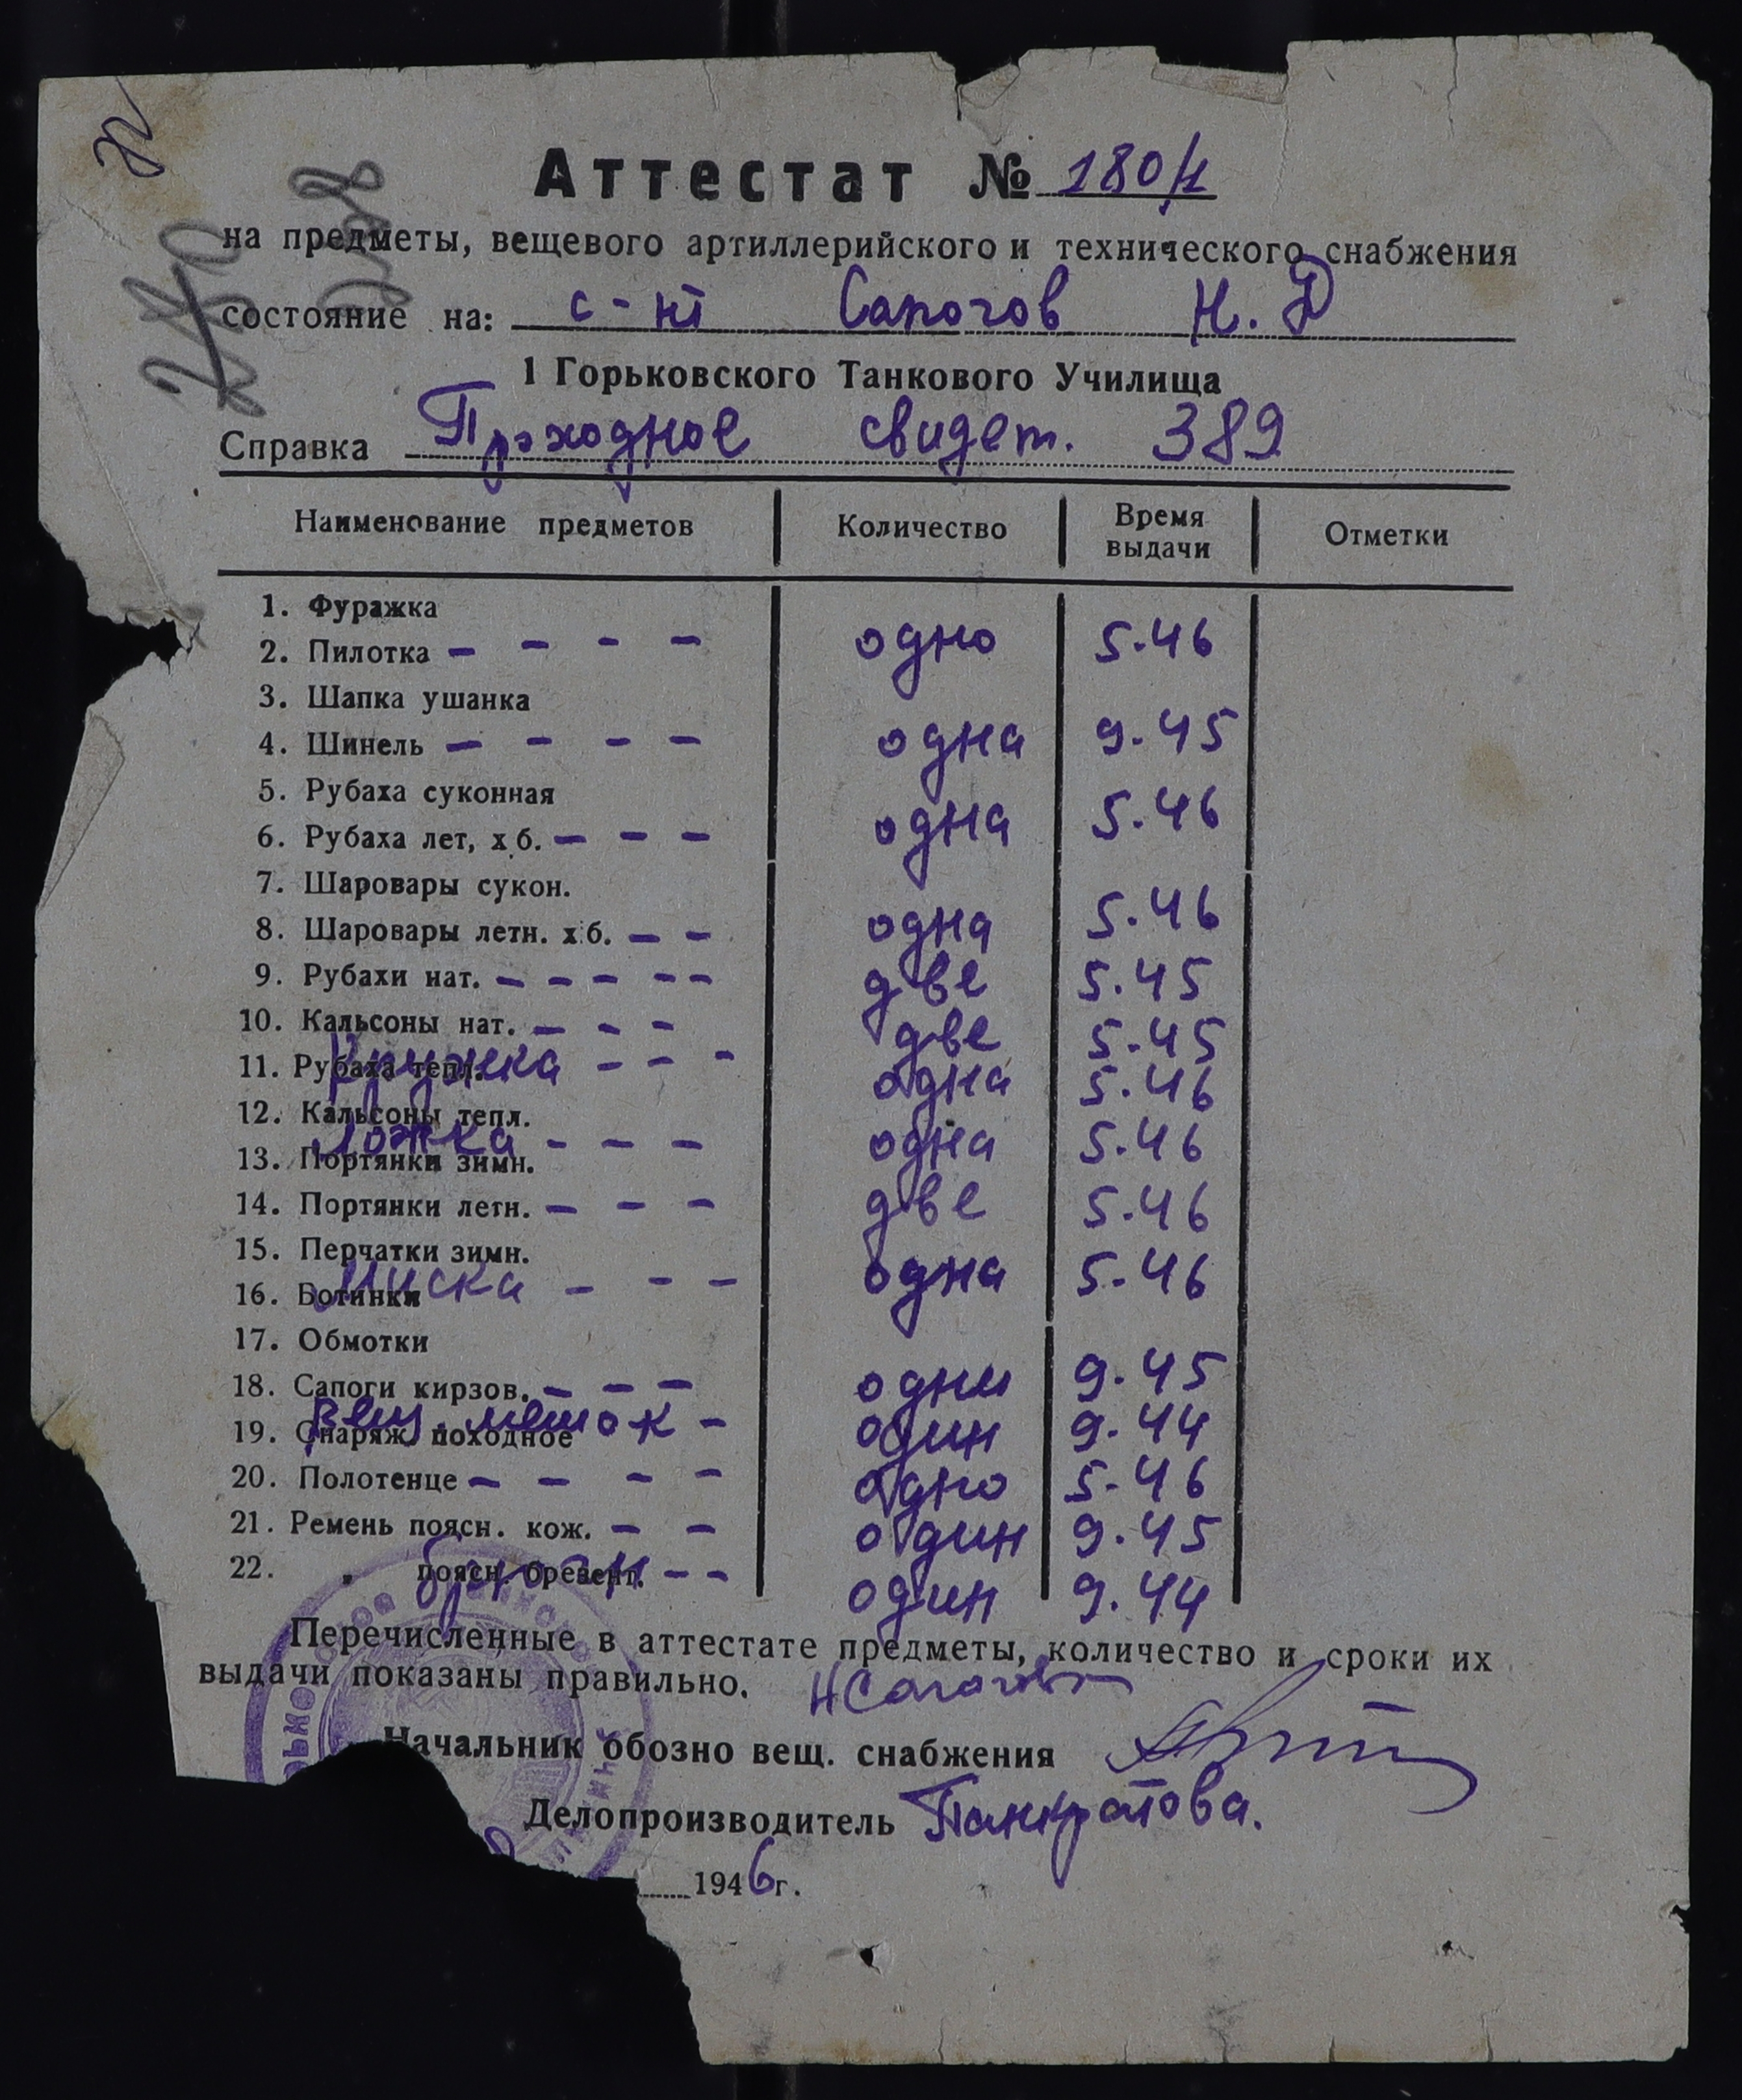 Аттестат № 180/1
на предметы, вещевого артиллерийского и технического снабжения
состояние на: с-нт Сапогов Н. Д
1 Горьковского Танкового Училища
Справка Проходное свидет. 389
Наименование предметов Количество Время выдачи Отметки
1. Фуражка
2. Пилотка – – – – одно 5.46
3. Шапка ушанка
4. Шинель – – – – одна 9.45
5. Рубаха суконная
6. Рубаха лет, х.б. – – – одна 5.46
7. Шаровары сукон.
8. Шаровары летн. х.б. – – одна 5.46
9. Рубахи нат. – – – – – две 5.45
10. Кальсоны нат. – – – две 5.45
11. Рубаха тепл. Кружка – – – одна 5.46
12. Кальсоны тепл.
Ложка – – – одна 5.46
13. Портянки зимн.
14. Портянки летн. – – – две 5.46
15. Перчатки зимн.
Миска – – – одна 5.46
16. Ботинки
17. Обмотки
18. Сапоги кирзов. – – – одни 9.45
19. Снаряж. походное Вещ. мешок – один 9.44
20. Полотенце – – – – одно 5.46
21. Ремень поясн. кож. – – один 9.45
22. „ поясн. брезент. – – один 9.44
Перечисленные в аттестате предметы, количество и сроки их
выдачи показаны правильно. НСапогов
Начальник обозно вещ. снабжения
Делопроизводитель Панкратова.
1946г.